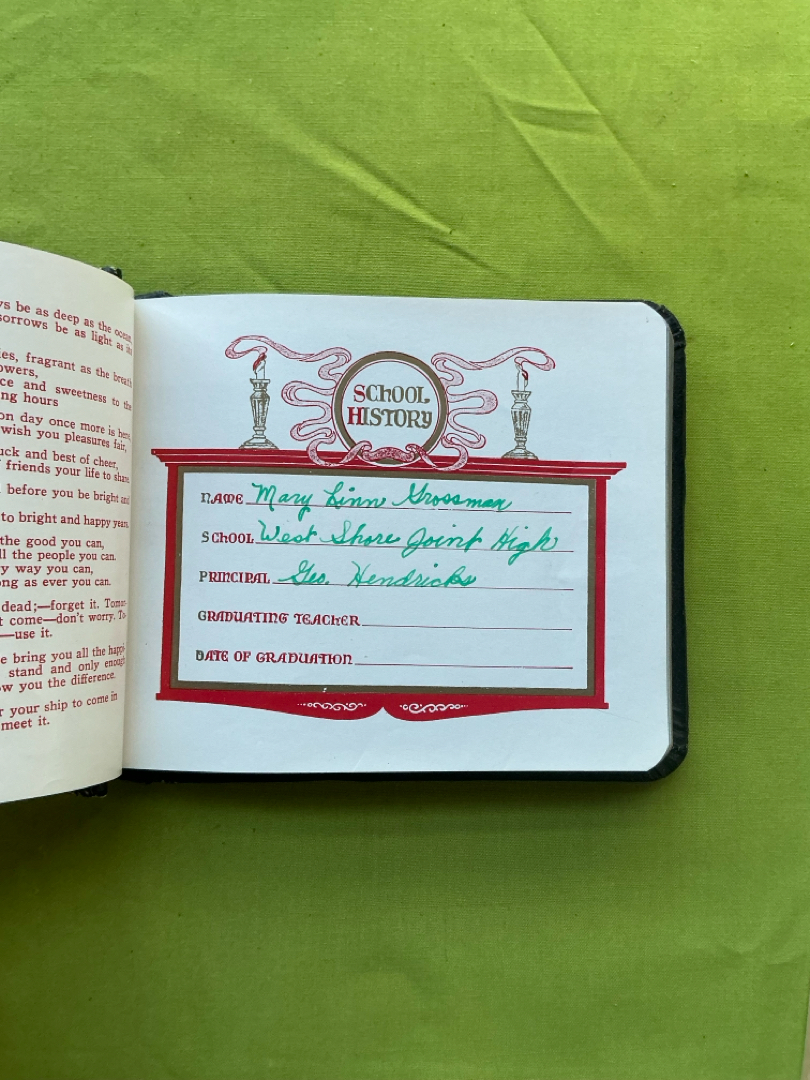 ys be as deep as the ocean,
sorrows be as light as its
ies, fragrant as the breath
owers,
ce and sweetness to the
ng hours
on day once more is here,
wish you pleasures fair,
uck and best of cheer,
friends your life to share.
before you be bright and
to bright and happy years.
the good you can,
ll the people you can.
ry way you can,
ong as ever you can.
dead;—forget it. Tomor-
t come—don't worry. To-
—use it.
e bring you all the happi-
stand and only enough
ow you the difference.
r your ship to come in
meet it.
SCHOOL
HISTORY
NAME Mary Linn Grossman
SCHOOL West Shore Joint High
PRINCIPAL Geo. Hendricks
GRADUATING TEACHER
DATE OF GRADUATION